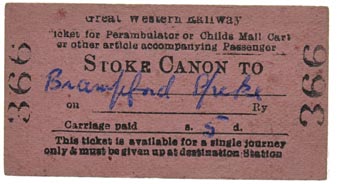 Great Western Railway
Ticket for Perambulator or Childs Mail Cart
or other article accompanying Passenger
STOKE CANON TO
Brampford Speke
on Ry
Carriage paid s. 5 d.
This ticket is available for a single journey
only & must be given up at destination Station
366
366